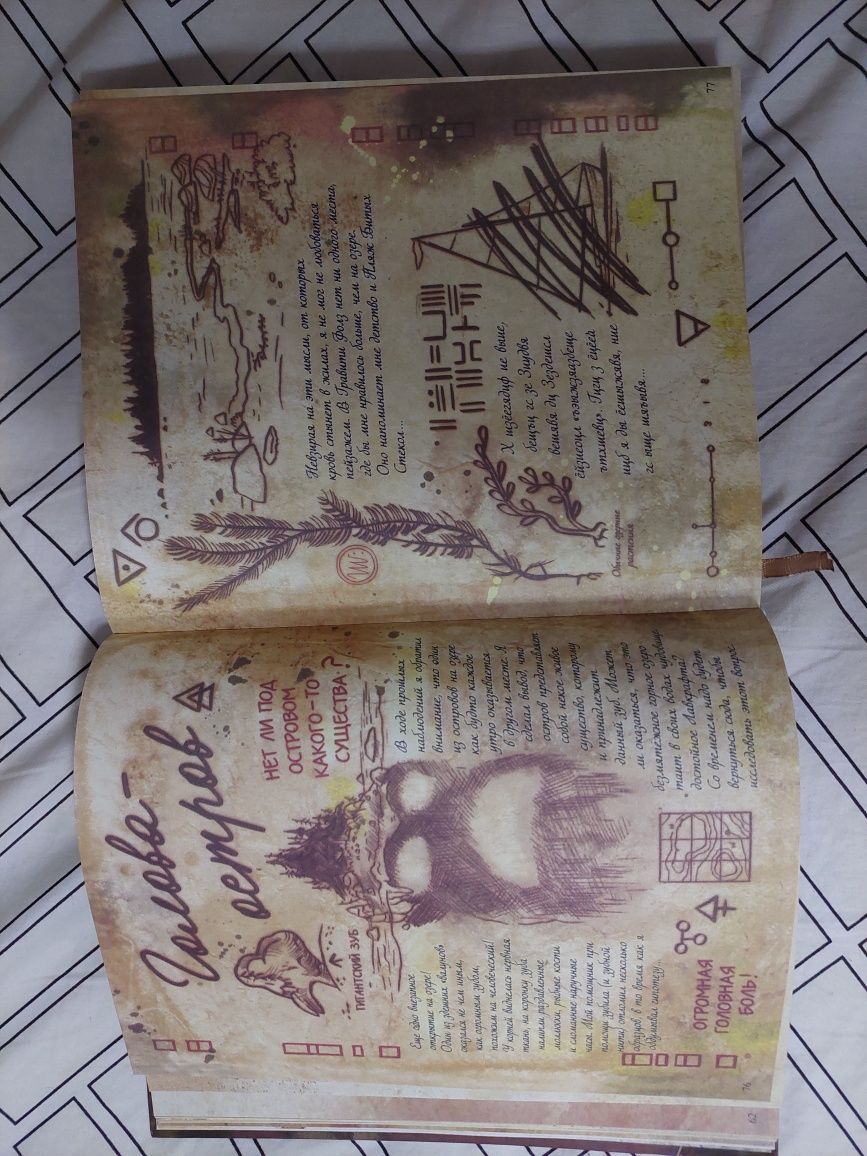 Голова-
остров
ГИГАНТСКИЙ ЗУБ
НЕТ ЛИ ПОД
ОСТРОВОМ
КАКОГО-ТО
СУЩЕСТВА?
Еще одно внезапное
открытие на озере!
Один из здешних «валунов»
оказался не чем иным,
как огромным зубом,
похожим на человеческий!
У корней виднелась нервная
ткань, на коронку зуба
налипли раздавленные
моллюски, рыбьи кости
и сломанные наручные
часы. Мой помощник при
помощи зубила (и зубной
нити) отломил несколько
образцов, в то время как я
обдумывал гипотезу...
В ходе прошлых
наблюдений я обратил
внимание, что один
из островов на озере
как будто каждое
утро оказывается
в другом месте. Я
сделал вывод, что
остров представляет
собой некое живое
существо, которому
и принадлежит
данный зуб. Может
ли оказаться, что это
безмятежное горное озеро
таит в своих водах чудовище,
достойное Лавкрафта?
Со временем надо будет
вернуться сюда, чтобы
исследовать этот вопрос.
ОГРОМНАЯ
ГОЛОВНАЯ
БОЛЬ!
62
76
Невзирая на эти мысли, от которых
кровь стынет в жилах, я не мог не любоваться
пейзажем. В Гравити Фолз нет ни одного места,
где бы мне нравилось больше, чем на озере.
Оно напоминает мне детство и Пляж Битых
Стекол...
Обычные озерные
растения
Х
бещъц гс зе Зиудвя
вешявя
гс ыще шяъывя...
77